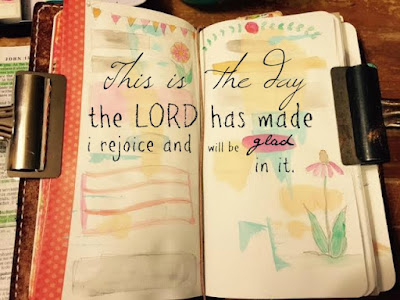 This is The Day
the LORD has made
i rejoice and will be glad
in it.